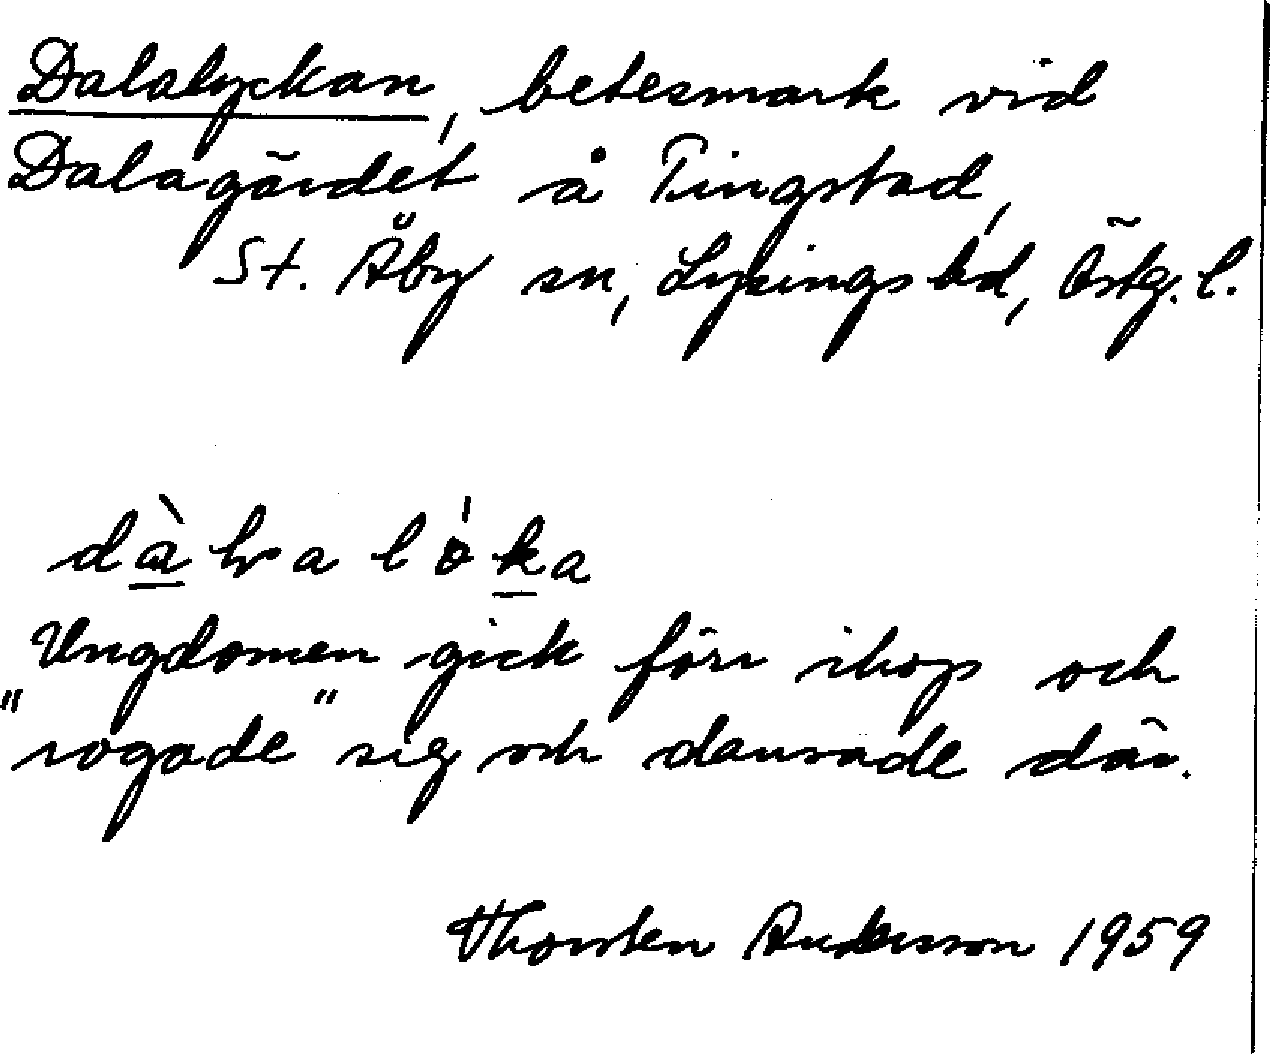 Dalalyckan, betesmark vid
Dalagärdet å Tingstad,
St. Åby sn, Lysings hd, Östg. l.
dàlvalóka
Ungdomen gick förr ihop och
"rogade" sig och dansade där.
Thorsten Andersson 1959